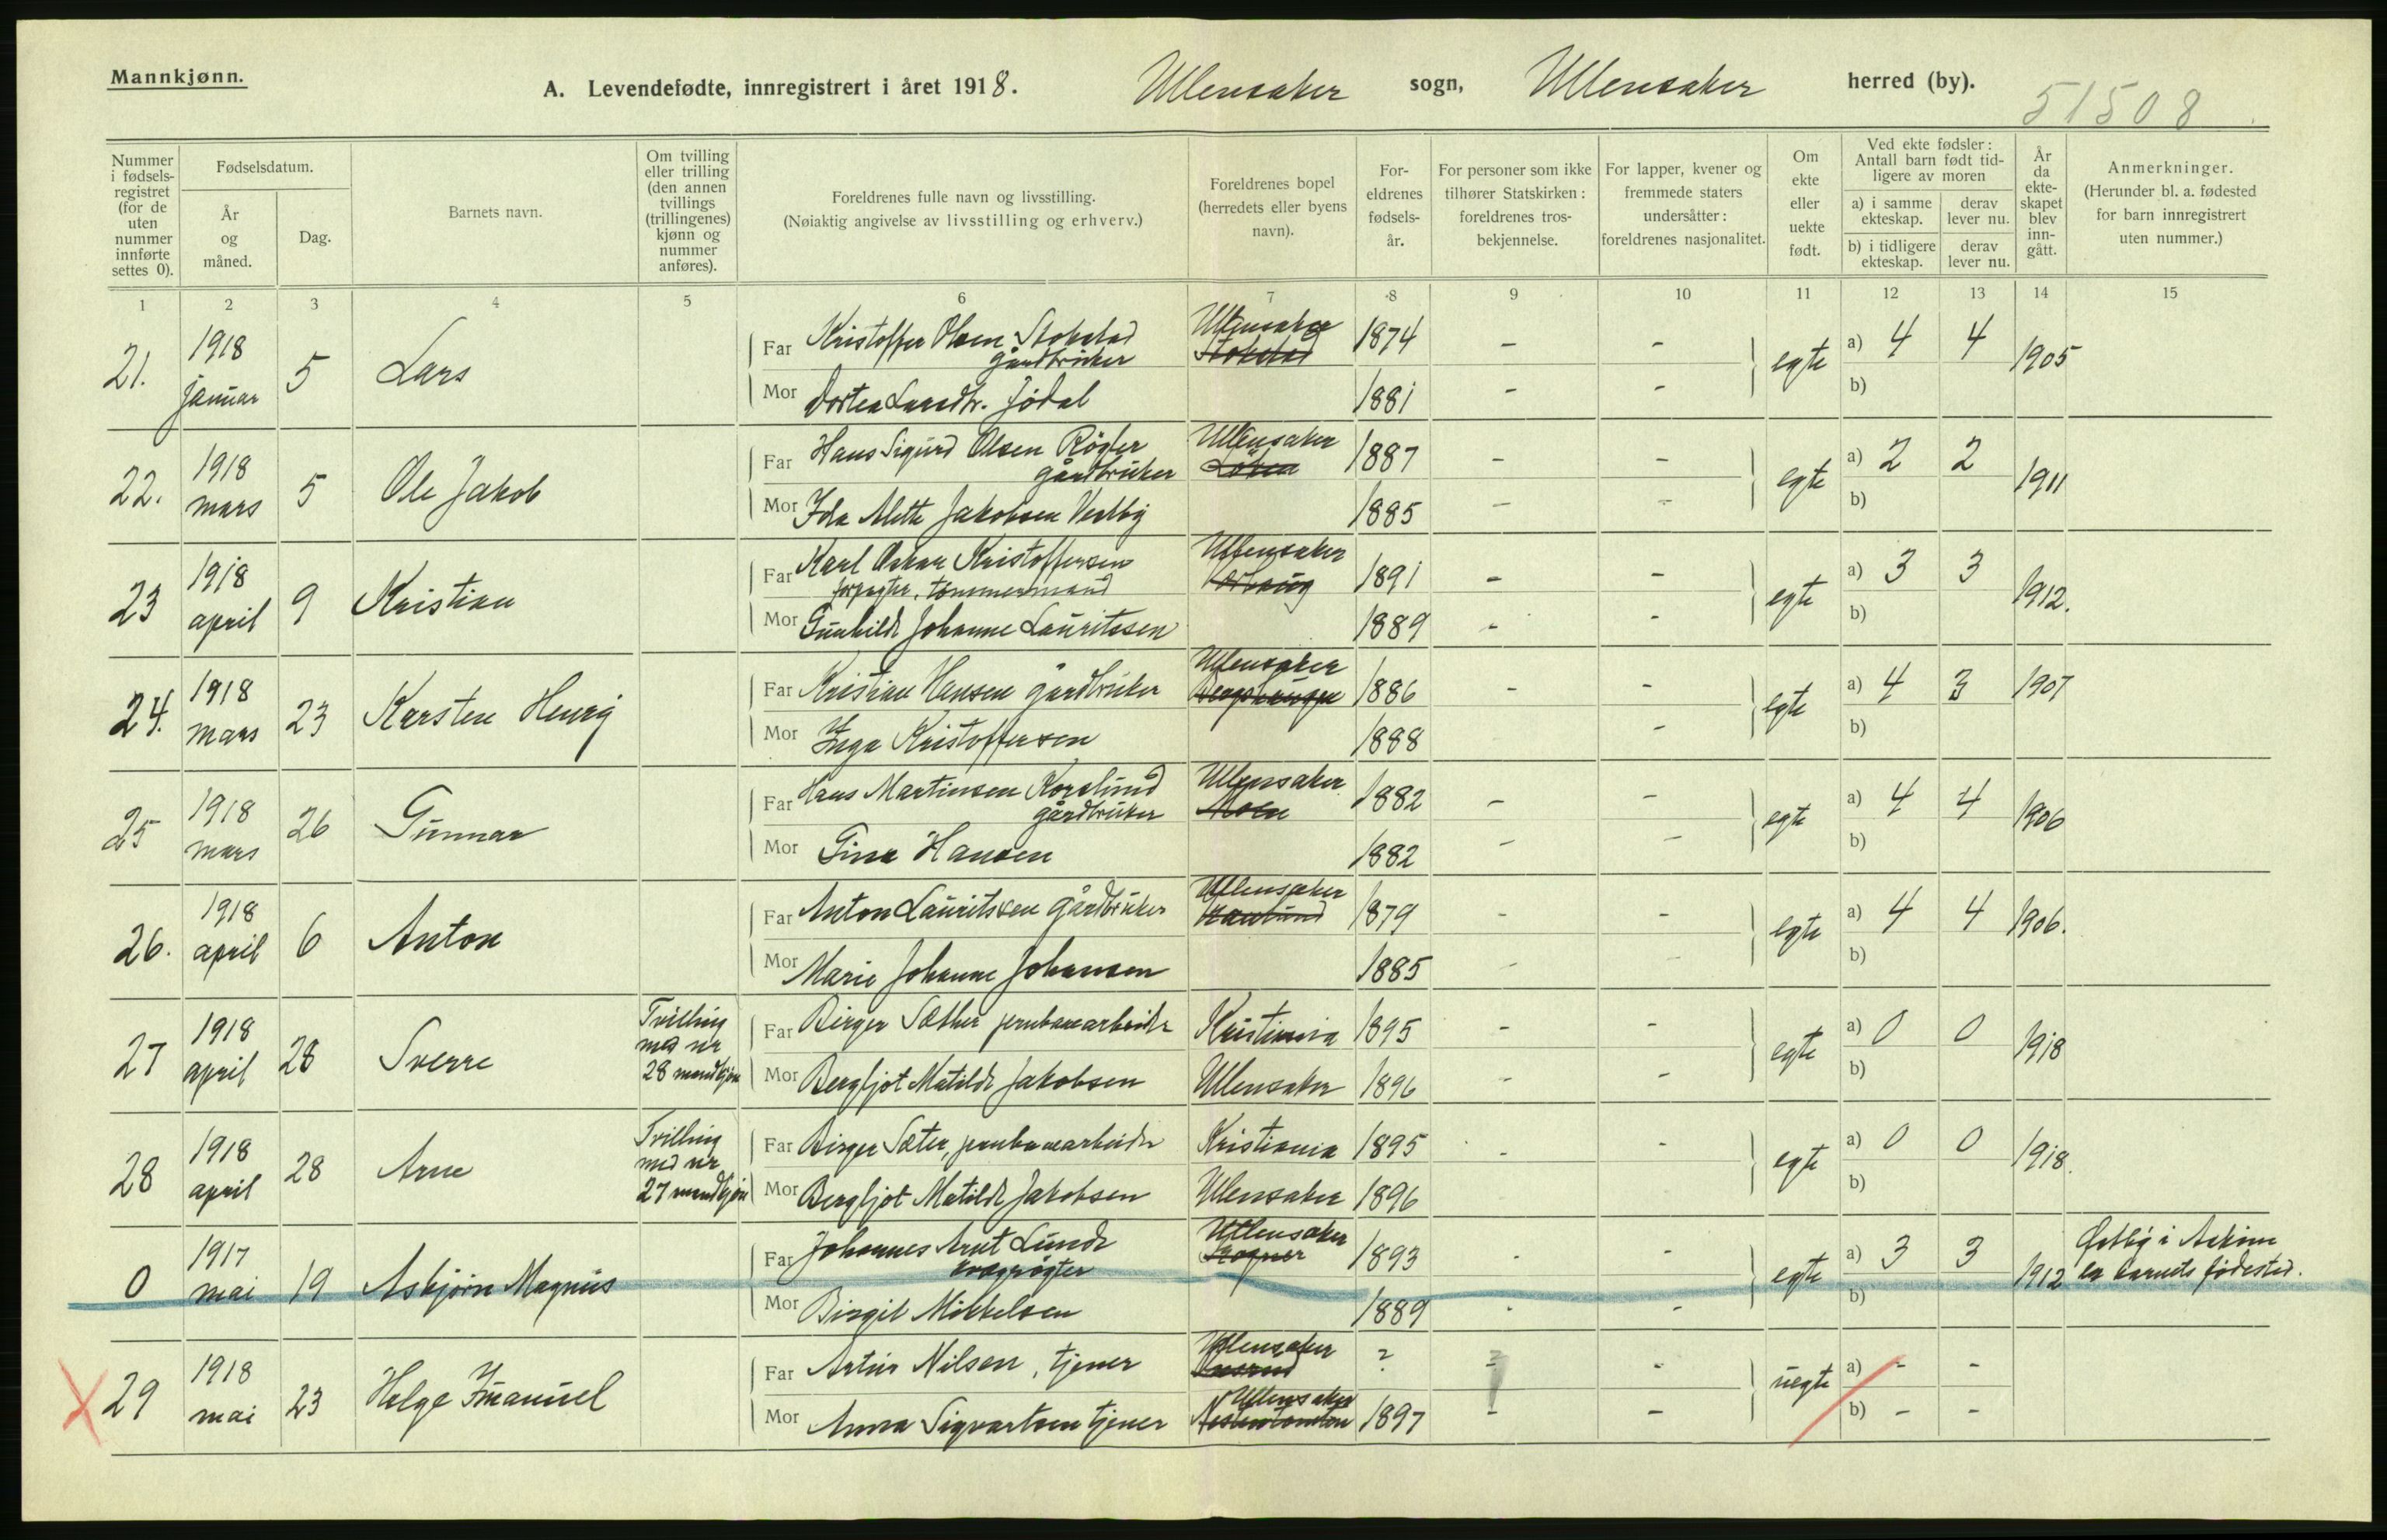 Mannkjønn.
A. Levendefødte, innregistrert i året 1918. Ullensaker sogn, Ullensaker herred (by). 51508
Nummer i fødselsregistret (for de uten nummer innførte settes 0).
Fødselsdatum.
År og måned.
Dag.
Barnets navn.
Om tvilling eller trilling (den annen tvillings (trillingenes) kjønn og nummer anføres).
Foreldrenes fulle navn og livsstilling.
(Nøiaktig angivelse av livsstilling og erhverv.)
Foreldrenes bopel (herredets eller byens navn).
For-eldrenes fødsels-år.
For personer som ikke tilhører Statskirken: foreldrenes tros-bekjennelse.
For lapper, kvener og fremmede staters undersåtter: foreldrenes nasjonalitet.
Om ekte eller uekte født.
Ved ekte fødsler: Antall barn født tid-ligere av moren
a) i samme ekteskap. derav lever nu.
b) i tidligere ekteskap. derav lever nu.
År da ekte-skapet blev inn-gått.
Anmerkninger.
(Herunder bl. a. fødested for barn innregistrert uten nummer.)
1 2 3 4 5 6 7 8 9 10 11 12 13 14 15
21. 1918 januar 5 Lars
Far Kristoffer Olsen Stokstad gårdbruker Ullensaker Stokstad 1874 - - egte a) 4 4 1905
Mor Dortea Larsdtr. Jødal 1881 - - b)
22. 1918 mars 5 Ole Jakob
Far Hans Sigurd Olsen Røgler gårdbruker Ullensaker Løken 1887 - - egte a) 2 2 1911
Mor Ida Alette Jakobsen Vestby 1885 - - b)
23 1918 april 9 Kristian
Far Karl Oskar Kristoffersen forpagter, tømmermand Ullensaker 1891 - - egte a) 3 3 1912.
Mor Gunhild Johanne Lauritssen 1889 - - b)
24. 1918 mars 23 Karsten Henry
Far Kristian Hansen gårdbruker Ullensaker 1886 - - egte a) 4 3 1907
Mor Inga Kristoffersen 1888 - b)
25 1918 mars 26 Gunnar
Far Hans Martinsen Korslund gårdbruker Ullensaker Moen 1882 - - egte a) 4 4 1906
Mor Gina Hansen 1882 - - b)
26. 1918 april 6 Anton
Far Anton Lauritssen gårdbruker Ullensaker 1879 - - egte a) 4 4 1906.
Mor Marie Johanne Johansen 1885 - - b)
27 1918 april 28 Sverre Tvilling med nr 28 mandkjøn
Far Birger Sæther jernbanearbeider Kristiania 1895 - - egte a) 0 0 1918
Mor Bergljot Matilde Jakobsen Ullensaker 1896 - - b)
28 1918 april 28 Arne Tvilling med nr 27 mandkjøn
Far Birger Sæter, jernbanearbeider Kristiania 1895 - - egte a) 0 0 1918.
Mor Bergljot Matilde Jakobsen Ullensaker 1896 b)
0 1917 mai 19 Asbjørn Magnus
Far Johannes Arnt Lunde kvægrøgter Ullensaker Rogner 1893 - - egte a) 3 3 1912 Østby i Askim er barnets fødested.
Mor Birgit Mikkelsen 1889 - - b)
29 1918 mai 23 Helge Imanuel
Far Artur Nilsen, tjener Ullensaker ? - - uegte a) - -
Mor Anna Sigvartsen tjener Ullensaker 1897 - - b) - -